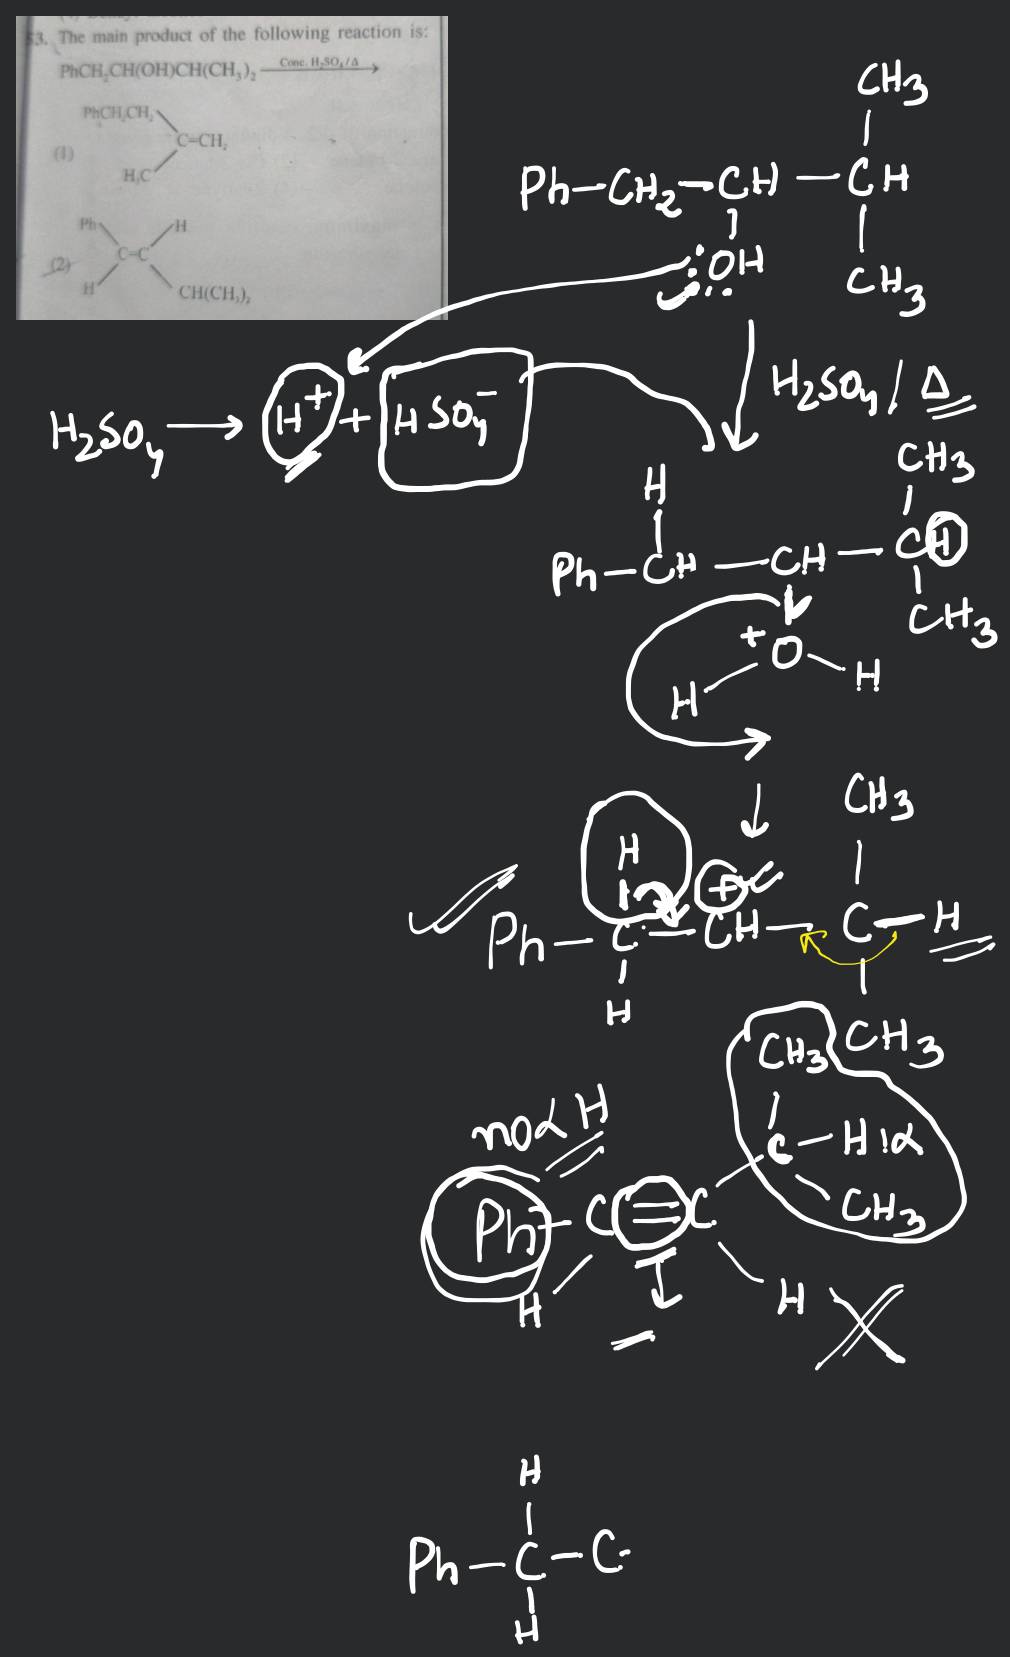 53. The main product of the following reaction is:
PhCH₂CH(OH)CH(CH₃)₂ Conc. H₂SO₄/Δ
PhCH₂CH₂
C=CH₂
(1)
H₃C
Ph H
C=C
(2)
H CH(CH₃)₂
CH3
Ph-CH2-CH-CH
:OH
CH3
H2SO4/Δ
H2SO4 → H+ + HSO4-
CH3
H
Ph-CH-CH-CH
CH3
+O
H H
CH3
H
+
Ph-C-CH-C-H
H
CH3
CH3
no α H
C-H 1α
Ph-C=C CH3
H H
H
Ph-C-C
H